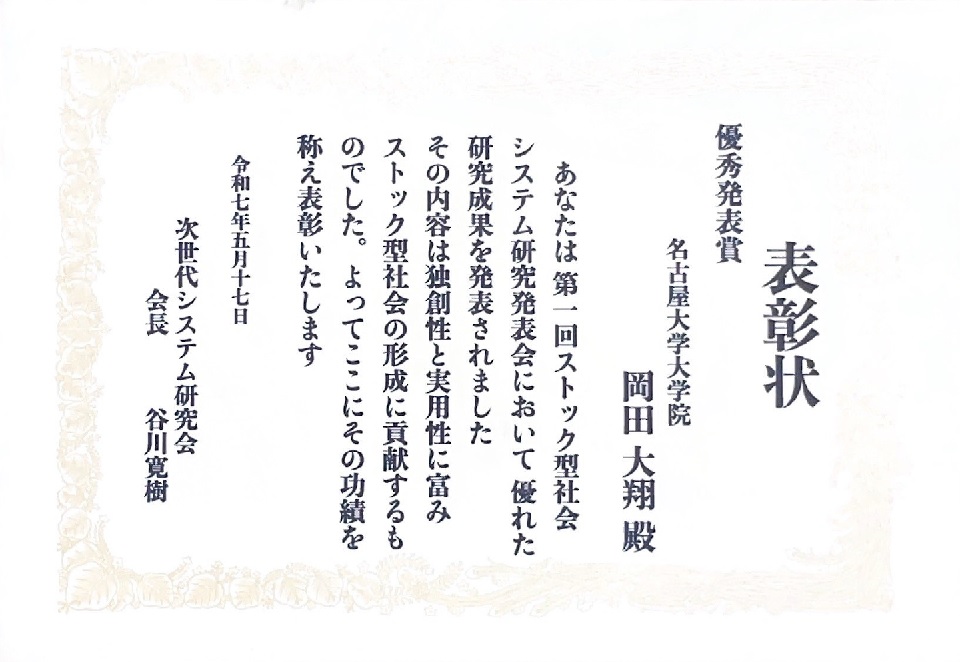 表彰状
優秀発表賞
名古屋大学大学院
岡田 大翔 殿
あなたは 第一回ストック型社会
システム研究発表会において 優れた
研究成果を発表されました
その内容は独創性と実用性に富み
ストック型社会の形成に貢献するも
のでした。よってここにその功績を
称え表彰いたします
令和七年五月十七日
次世代システム研究会
会長 谷川寛樹